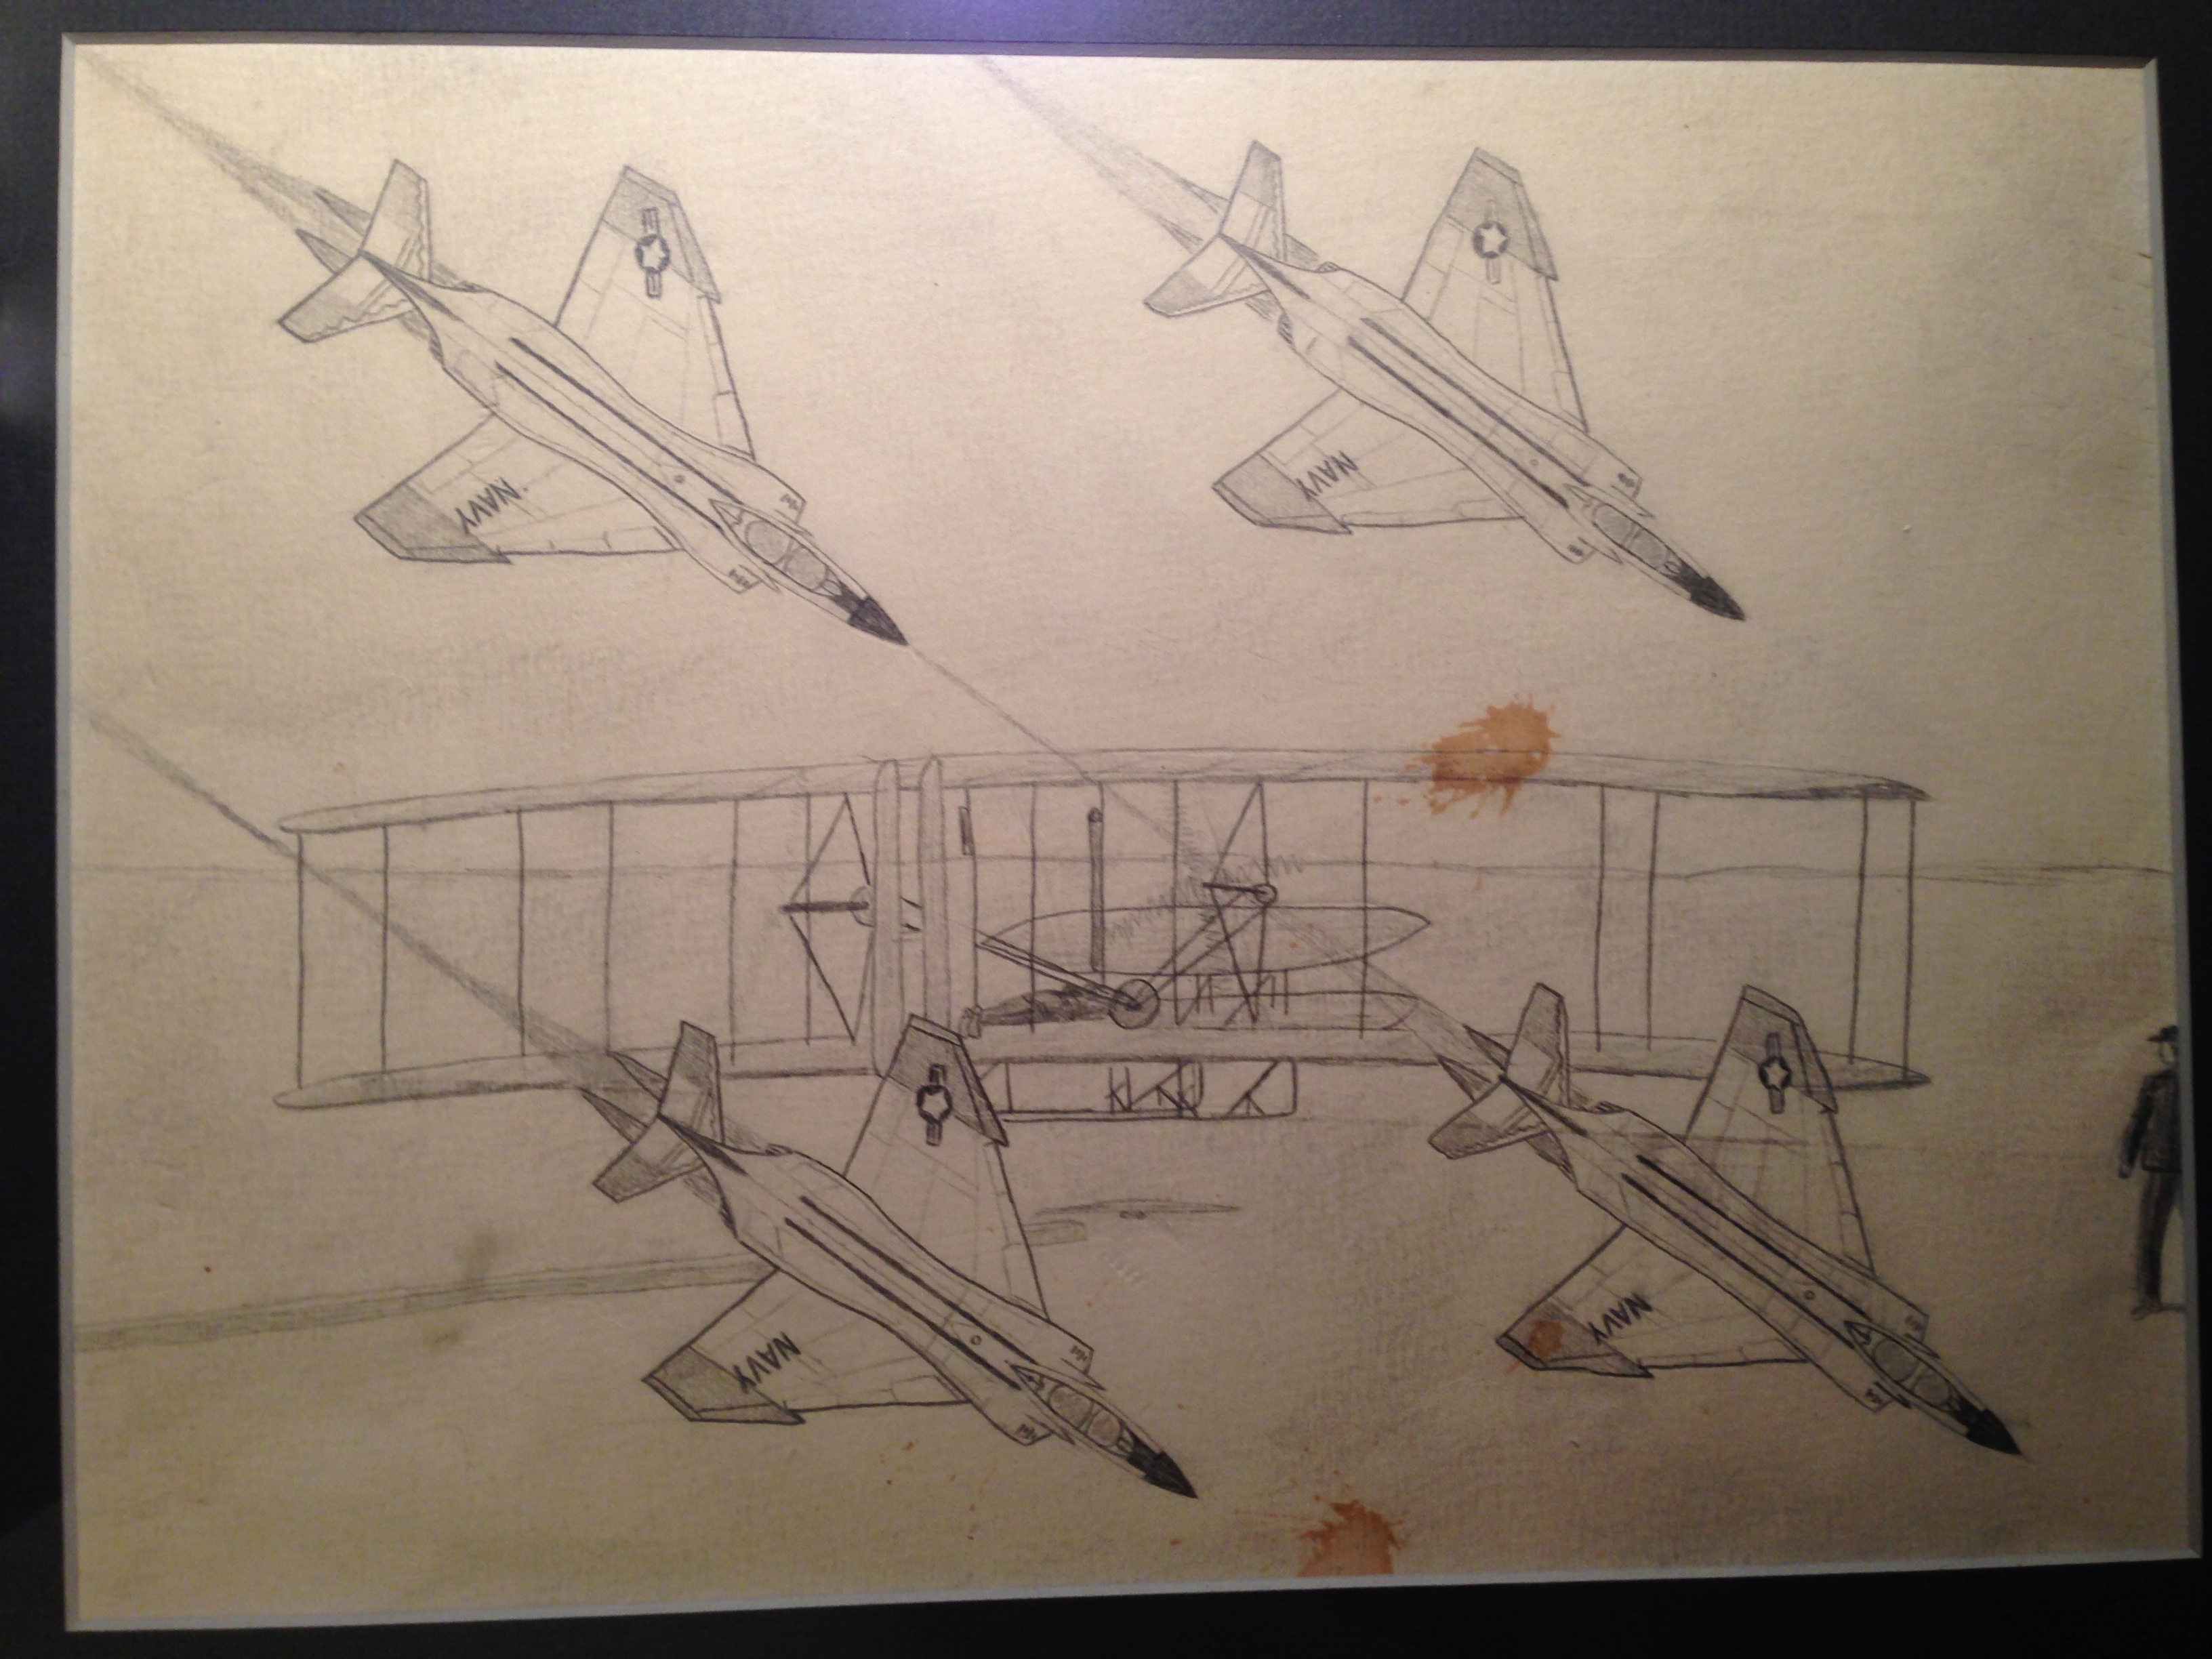 NAVY
NAVY
NAVY
NAVY